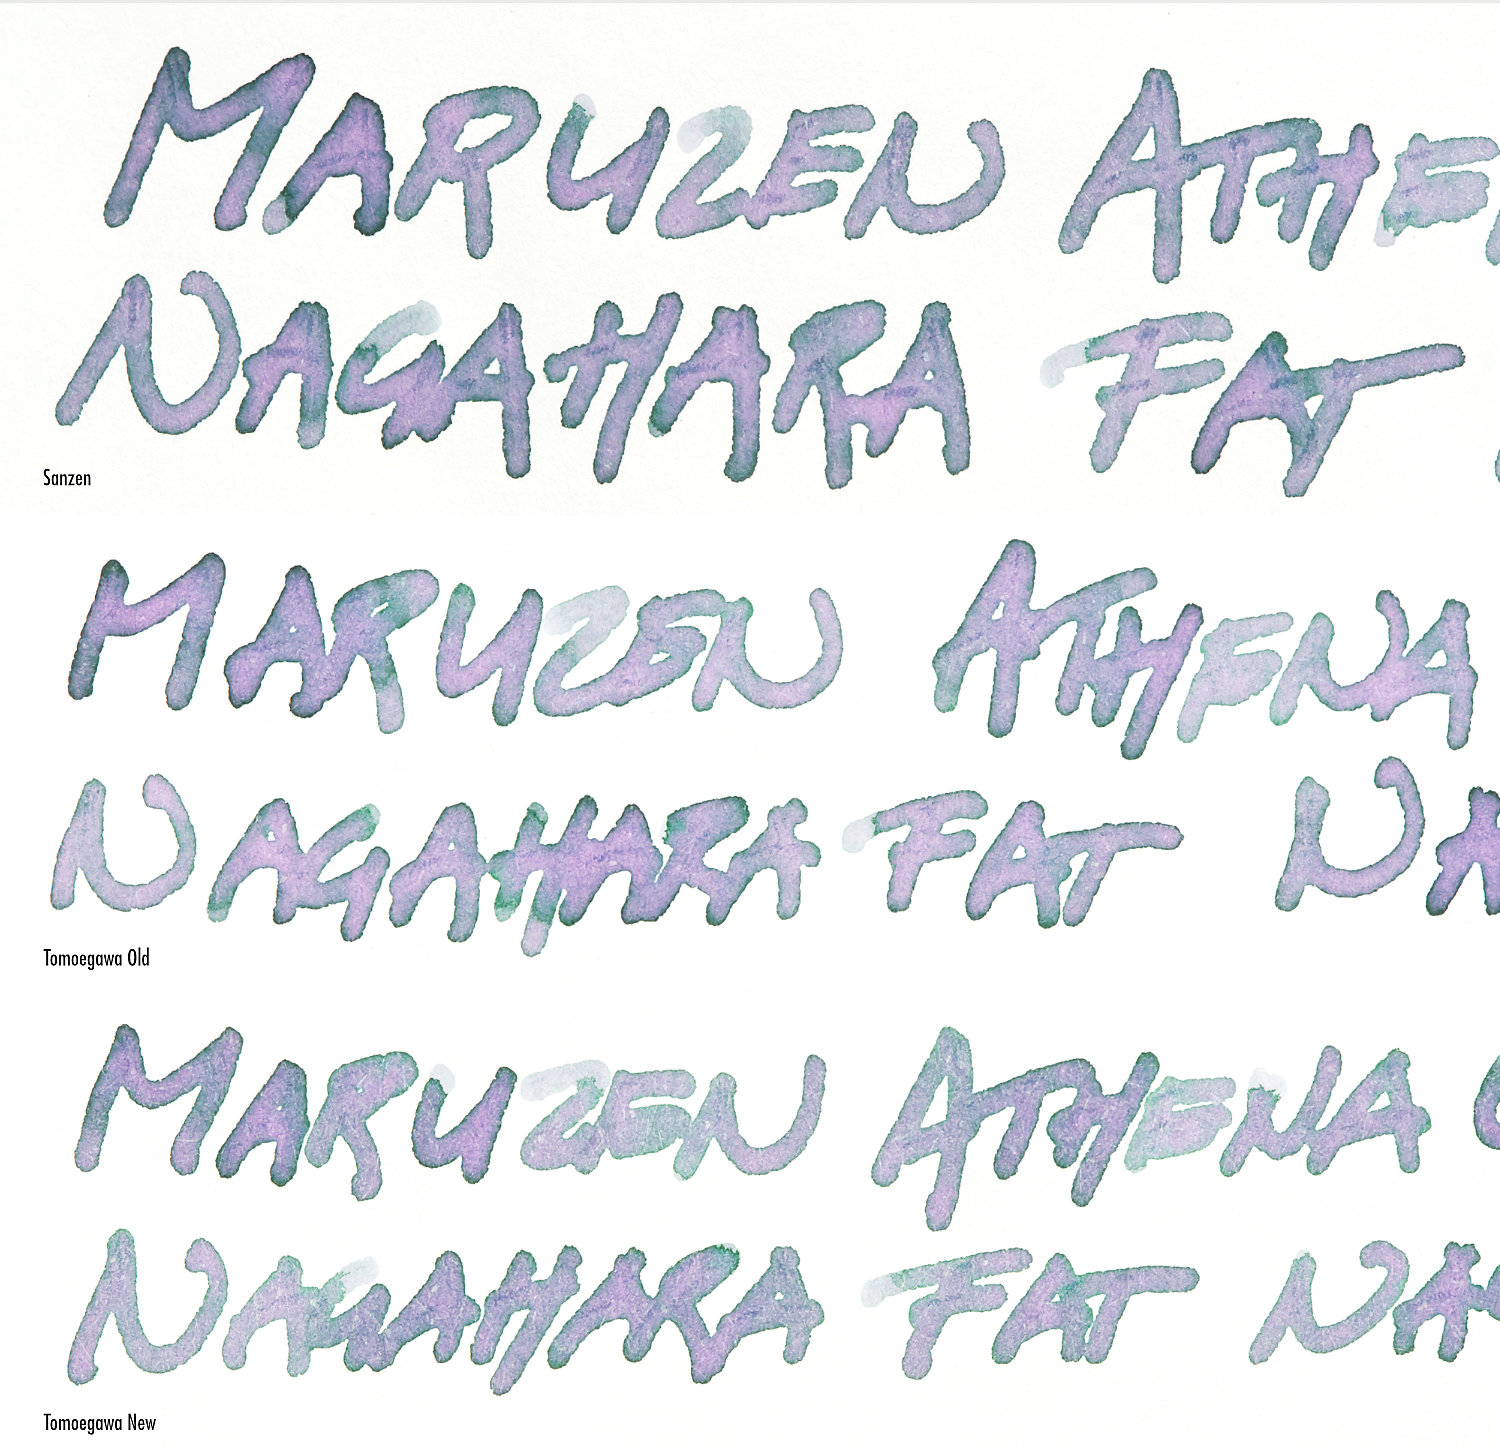 MARUZEN ATHE
NAGAHARA FAT
Sanzen
MARUZEN ATHENA
NAGAHARA FAT NA
Tomoegawa Old
MARUZEN ATHENA
NAGAHARA FAT NA
Tomoegawa New